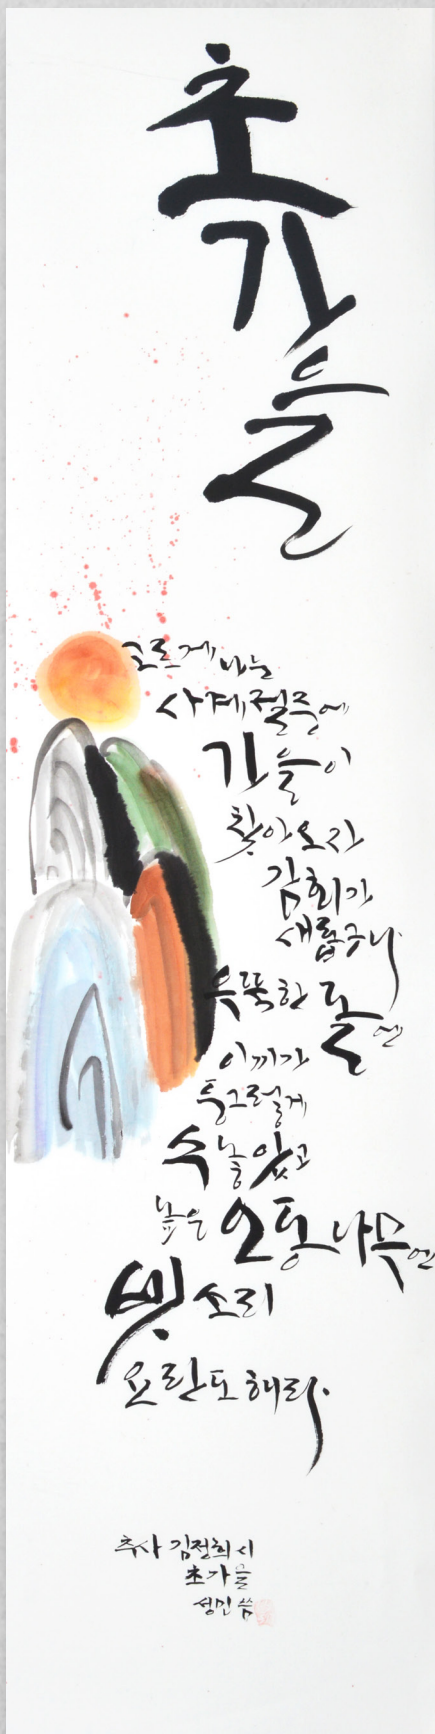 초가을
모르게 나는
사계절중에
가을이
찾아오자
감회가
새롭구나
우뚝한 돌엔
이끼가
둥그렇게
수놓았고
높은 오동나무엔
빗소리
요란도해라.
추사 김정희 시
초가을
성민 씀